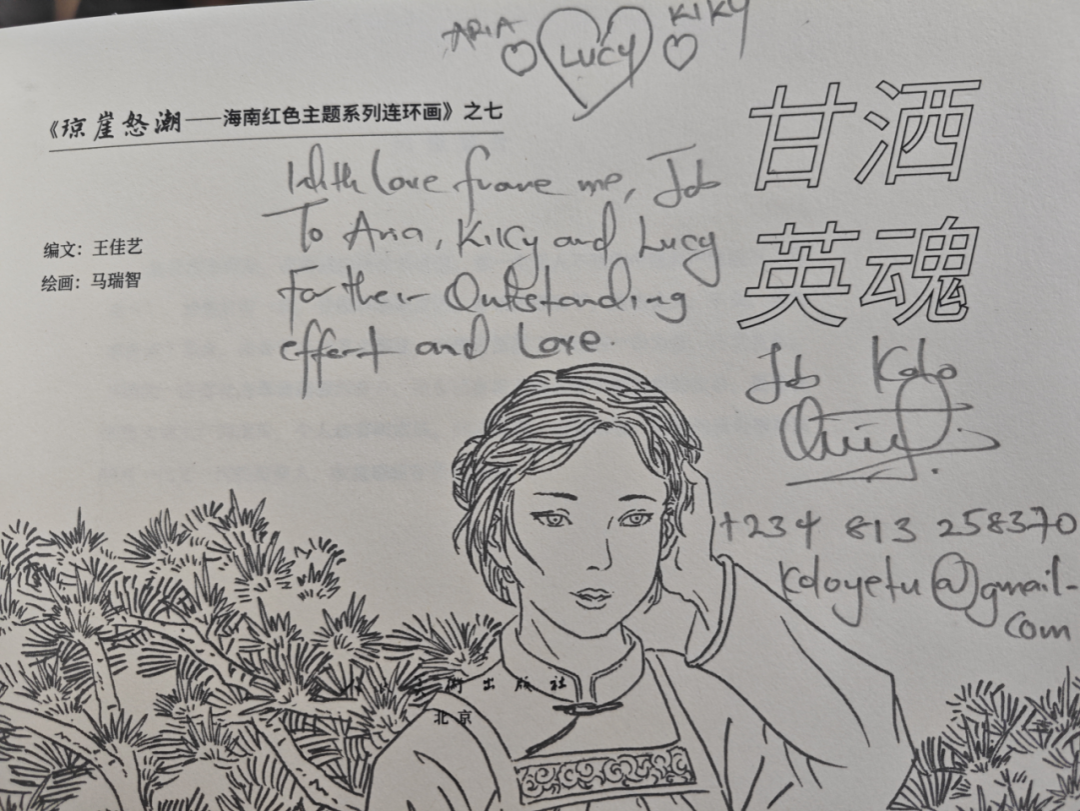 ARIA LUCY KIKY
《琼崖怒潮——海南红色主题系列连环画》之七
甘洒
英魂
编文：王佳艺
绘画：马瑞智
With love frome me, Job
To Aria, KiKy and Lucy
For their Outstanding
effort and Love.
Job Kolo
+234 813 258370
koloyetu@gmail-
com
美术出版社
北京